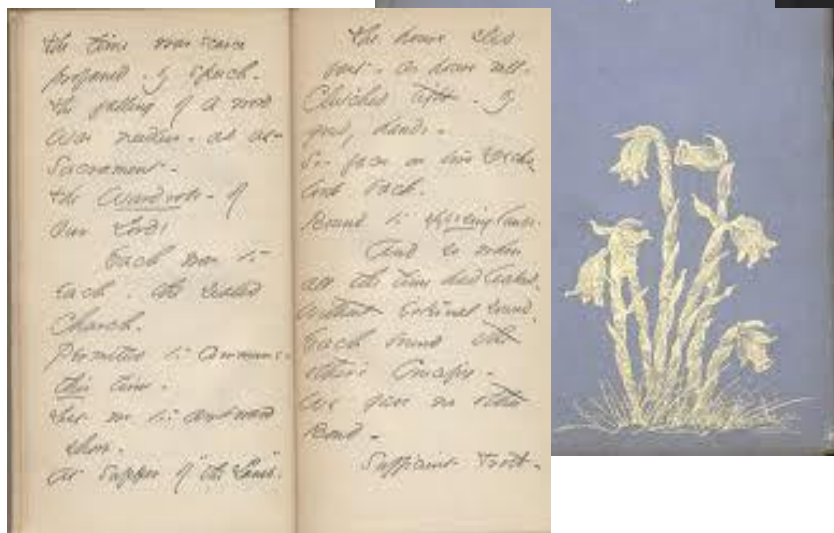 the time was scarce
profaned - by speech -
the falling of a word
Was needless - as at
Sacrament -
the Wardrobe - of
Our Lord!
Each was to
each - the sealed
Church -
Permitted to commune -
this time -
Lest we too awkward
show -
At Supper of "the Lamb".
The hours slid
fast - as hours will -
Clutched tight - by
greedy hands -
So - faces on two Decks
look back -
Bound to opposing lands.
And so when
all the time had leaked,
Without external sound,
Each bound the
other's Crucifix -
We gave no other
bond -
Sufficient troth -